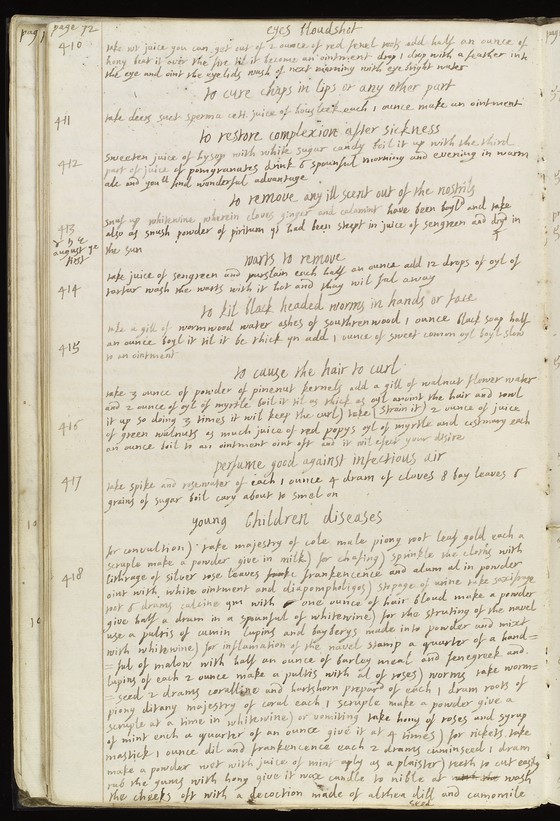 pag
page 72
eyes bloudshot
410 take wt juice you can get out of 2 ounce of red fenel roots add half an ounce of
hony boil it over the fire til it become an ointment drop 1 drop with a feather into
the eye and oint the eyelids wash of next morning with eyebright water
to cure chaps in lips or any other part
411 take deers suet sperma ceti juice of housleek each 1 ounce make an ointment
to restore complexione after sickness
412 Sweeten juice of hysop with white sugar candy boil it up with the third
part of juice of pomgranates drink 6 spounful morning and evening in warm
ale and you'll find wonderful advantage
to remove any ill scent out of the nostrils
413 snuf up whitewine wherein cloves ginger and calamint have been boyld and take
also as snush powder of piritum yt had been steept in juice of sengreen and dryd in
the sun
august ye
first
warts to remove
414 take juice of sengreen and purslain each half an ounce add 12 drops of oyl of
tartar wash the warts with it hot and they wil fal away
to kil black headed worms in hands or face
415 take a gill of wormwood water ashes of southrenwood 1 ounce black soap half
an ounce boyl it til it be thick yn add 1 ounce of sweet comon oyl boyl slow
to an ointment
to cause the hair to curl
take 3 ounce of powder of pinenut kernels add a gill of walnut flower water
and 2 ounce of oyl of myrtle boil it til as thick as oyl anoint the hair and rowl
it up so doing 3 times it wil keep the curl) take (strain it) 2 ounce of juice
416 of green walnuts as much juice of red popys oyl of myrtle and costmary each
an ounce boil to an ointment oint oft and it wil efect your desire
perfume good against infectious air
417 take spike and rosewater of each 1 ounce 4 dram of cloves 8 bay leaves 6
grains of sugar boil cary about to smel on
young Children diseases
for convultion) take majestry of cole male piony root leaf gold each a
scruple make a powder give in milk) for chafing) sprinkle the cloths with
418 lithrage of silver rose leaves frankencence and alum al in powder
oint with white ointment and diapompholigos) stopage of urine take saxifrage
root 6 drams calcine ym with one ounce of hair bloud make a powder
give half a dram in a spounful of whitewine) for the struting of the navel
use a pultis of cumin lupins and bayberys made into powder and mixt
with whitewine) for inflamation of the navel stamp a quarter of a hand=
=ful of malow with half an ounce of barley meal and fenegreek and
lupins of each 2 ounce make a pultis with oil of roses) worms take worm=
=seed 2 drams coralline and hartshorn prepard of each 1 dram roots of
piony ditany majestry of coral each 1 scruple make a powder give a
scruple at a time in whitewine) or vomiting take hony of roses and syrup
of mint each a quarter of an ounce give it at 4 times) for rickets take
mastick 1 ounce dil and frankencence each 2 drams cuminseed 1 dram
make a powder wet with juice of mint aply as a plaister) teeth to cut easy
rub the gums with hony give it wax candle to nible at wash
the cheeks oft with a decoction made of althea dill and camomile
seed